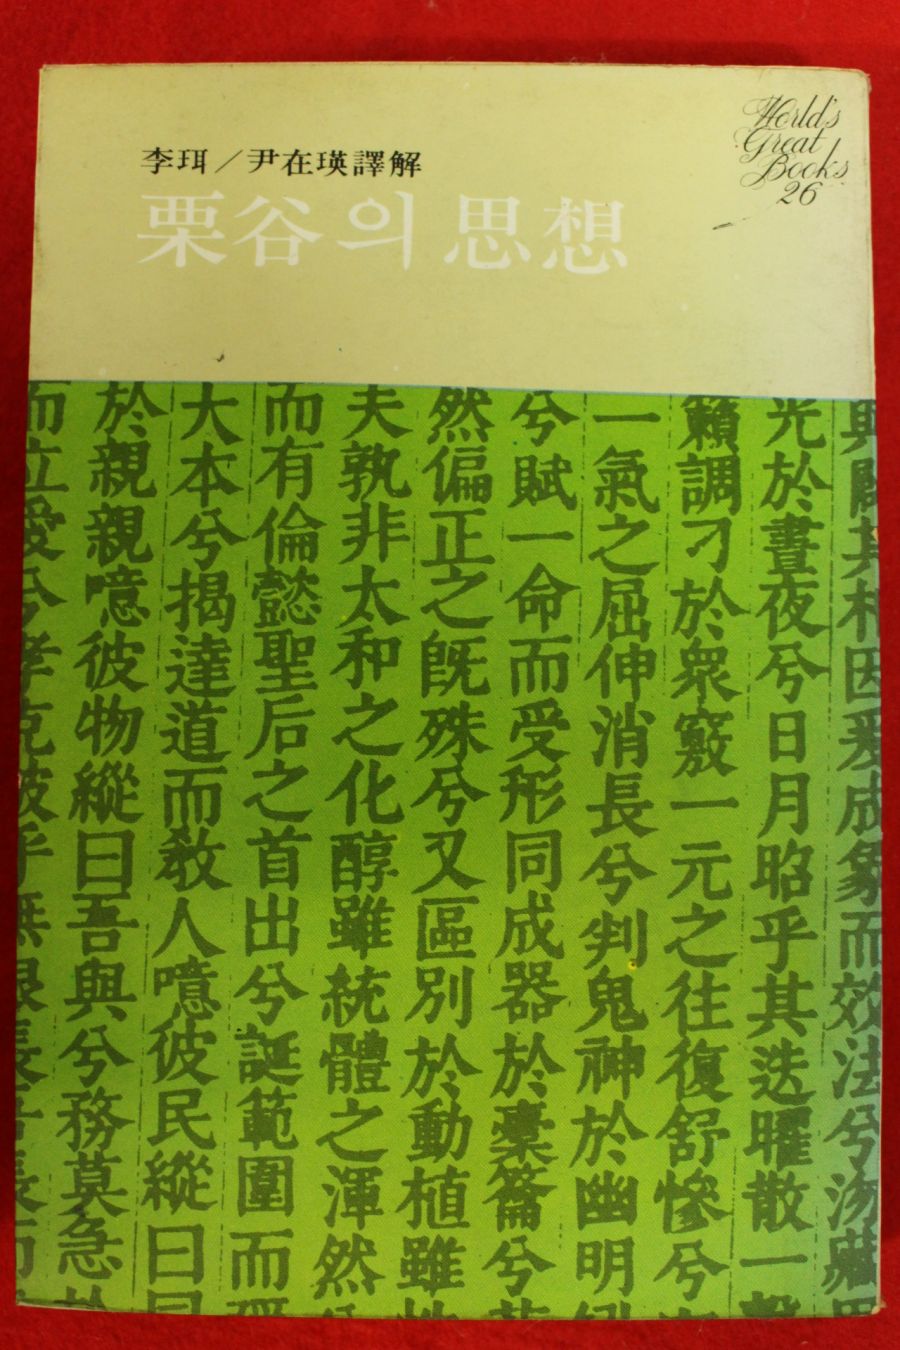 李珥／尹在瑛譯解
栗谷의 思想
World's
Great
Books
26
光於晝夜兮日月昭乎其迭曜散一
籟調刁於衆竅一元之往復舒慘兮
一氣之屈伸消長兮判鬼神於幽明
兮賦一命而受形同成器於橐籥兮
然偏正之旣殊兮又區別於動植雖
夫孰非太和之化醇雖統體之渾然
而有倫懿聖后之首出兮誕範圍而
大本兮揭達道而敎人噫彼民縱曰
於親親噫彼物縱曰吾與兮務莫急